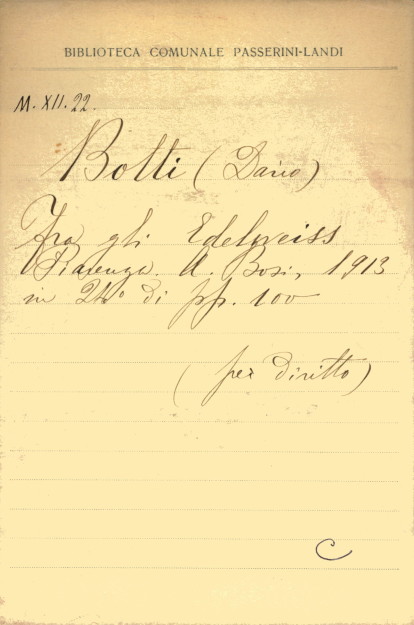 BIBLIOTECA COMUNALE PASSERINI-LANDI
M. XII. 22.
Botti (Dario)
Fra gli Edelweiss
Piacenza. A. Bosi, 1913
in 24° di pp. 100
(per diritto)
C